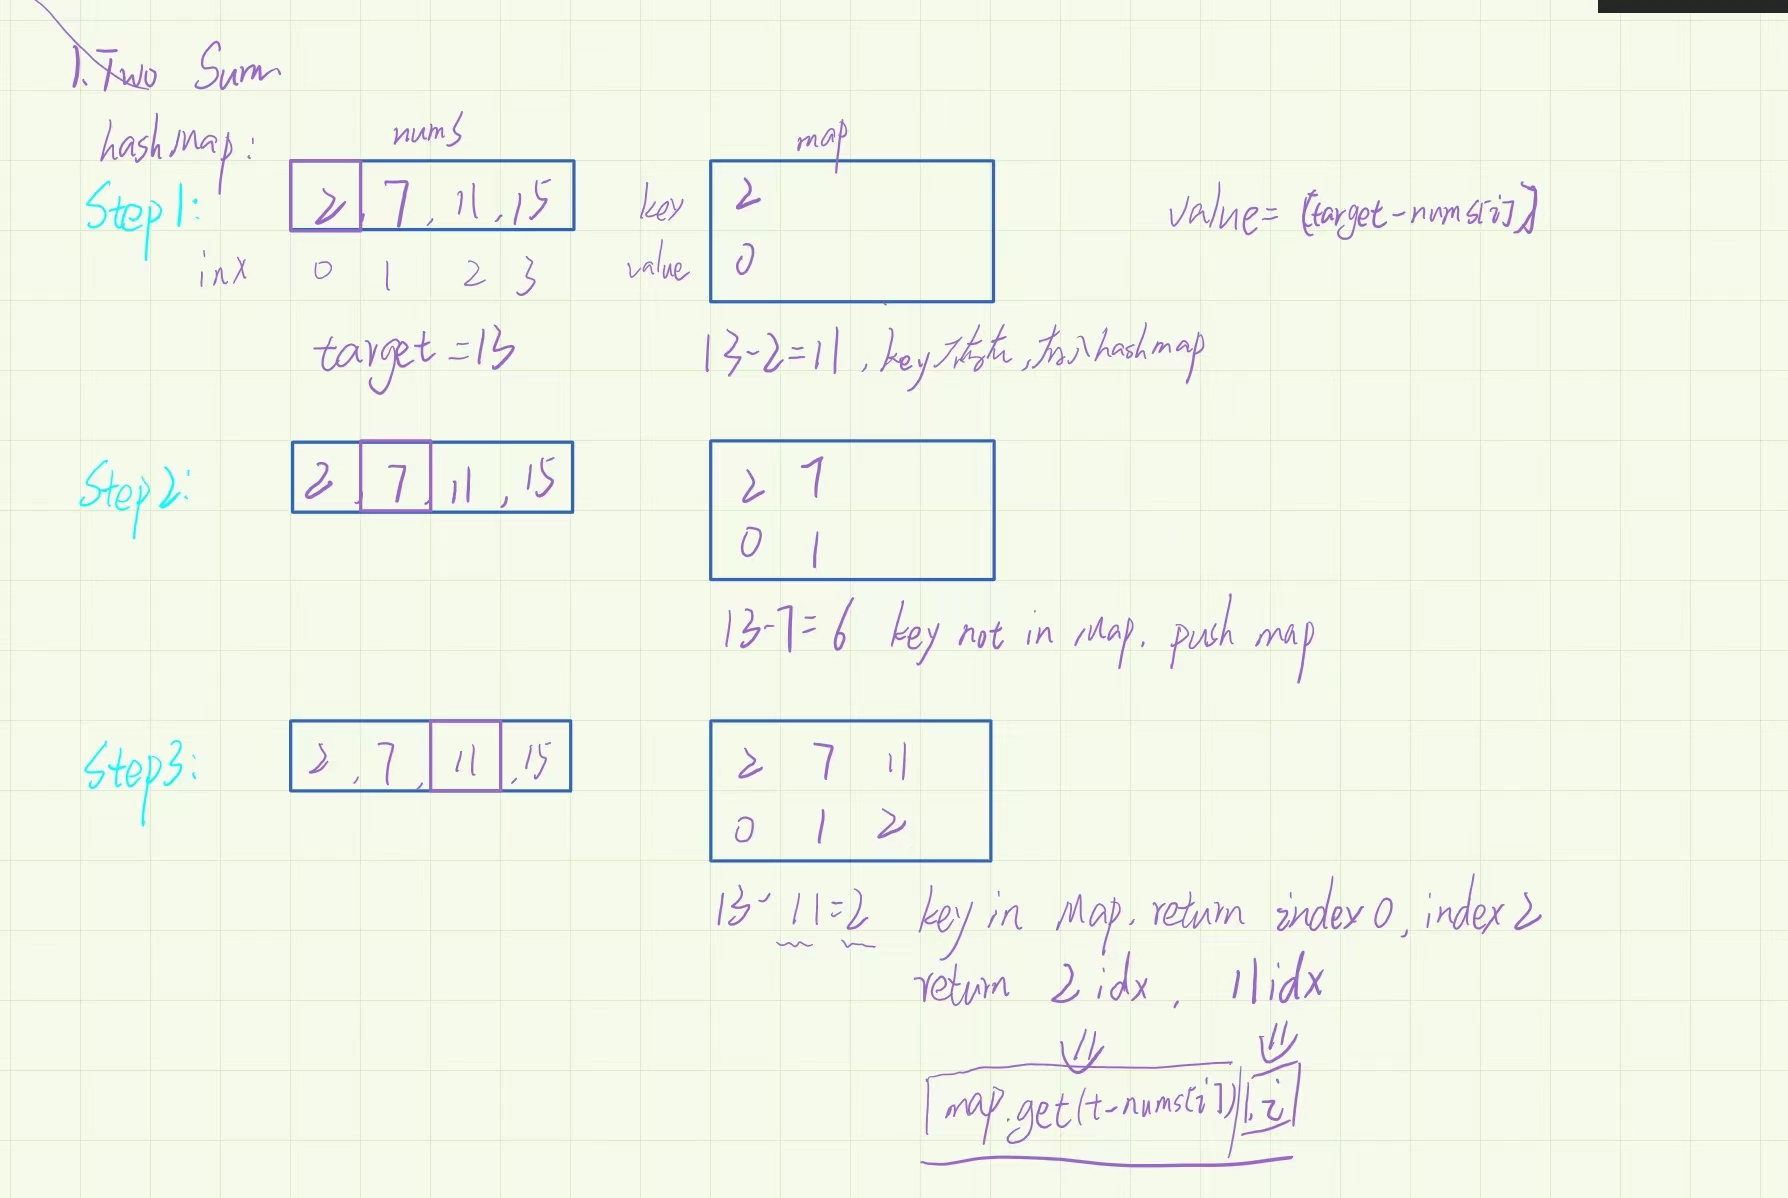 1. Two Sum
hashMap:
nums
map
Step1:
2, 7, 11, 15
key
2
value = (target-nums[i])
inx
0 1 2 3
value
0
target = 13
13-2=11, key不存在,存入hashmap
Step2:
2, 7, 11, 15
2 7
0 1
13-7=6 key not in Map. push map
Step3:
2, 7, 11, 15
2 7 11
0 1 2
13-11=2 key in Map. return index 0, index 2
return 2 idx, 11 idx
map.get(t-nums[i]), i